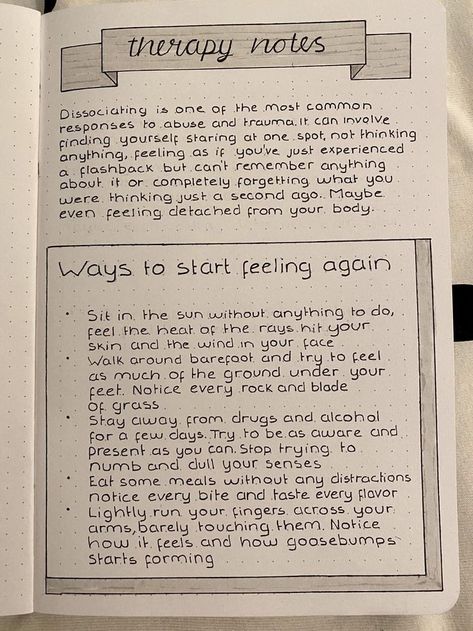 therapy notes
Dissociating is one of the most common
responses to abuse and trauma. It can involve
finding yourself staring at one spot, not thinking
anything, feeling as if you've just experienced
a flashback but can't remember anything
about it or completely forgetting what you
were thinking just a second ago. Maybe
even feeling detached from your body.
Ways to start feeling again
• Sit in the sun without anything to do,
feel the heat of the rays hit your
skin and the wind in your face
• Walk around barefoot and try to feel
as much of the ground under your
feet. Notice every rock and blade
of grass
• Stay away from drugs and alcohol
for a few days. Try to be as aware and
present as you can. Stop trying to
numb and dull your senses
• Eat some meals without any distractions
notice every bite and taste every flavor
• Lightly run your fingers across your
arms, barely touching them. Notice
how it feels and how goosebumps
starts forming